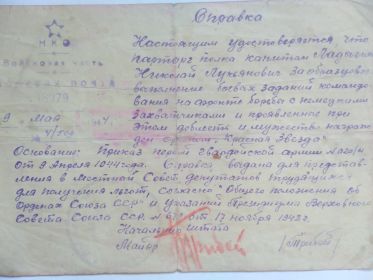 Справка
НКО
Войсковая часть
полевая почта
Настоящим удостоверяется что
парторг полка капитан
Николай Лукьянович За образцовое
выполнение боевых заданий командо-
вания на фронте борьбы с немецкими
захватчиками и проявленное при
9 май
этом доблесть и мужество награж-
ден орденом "Красная Звезда"
Основание: Приказ Гвардейской армии
от 9 Апреля 1944 года. Справка выдана для представ-
ления в местный Совет депутатов трудящихся
для получения льгот, согласно "Общего положения об
Орденах Союза ССР" и указания Президиума Верховного
Совета Союза ССР от 17 ноября 1942 г.
Начальник штаба
Майор